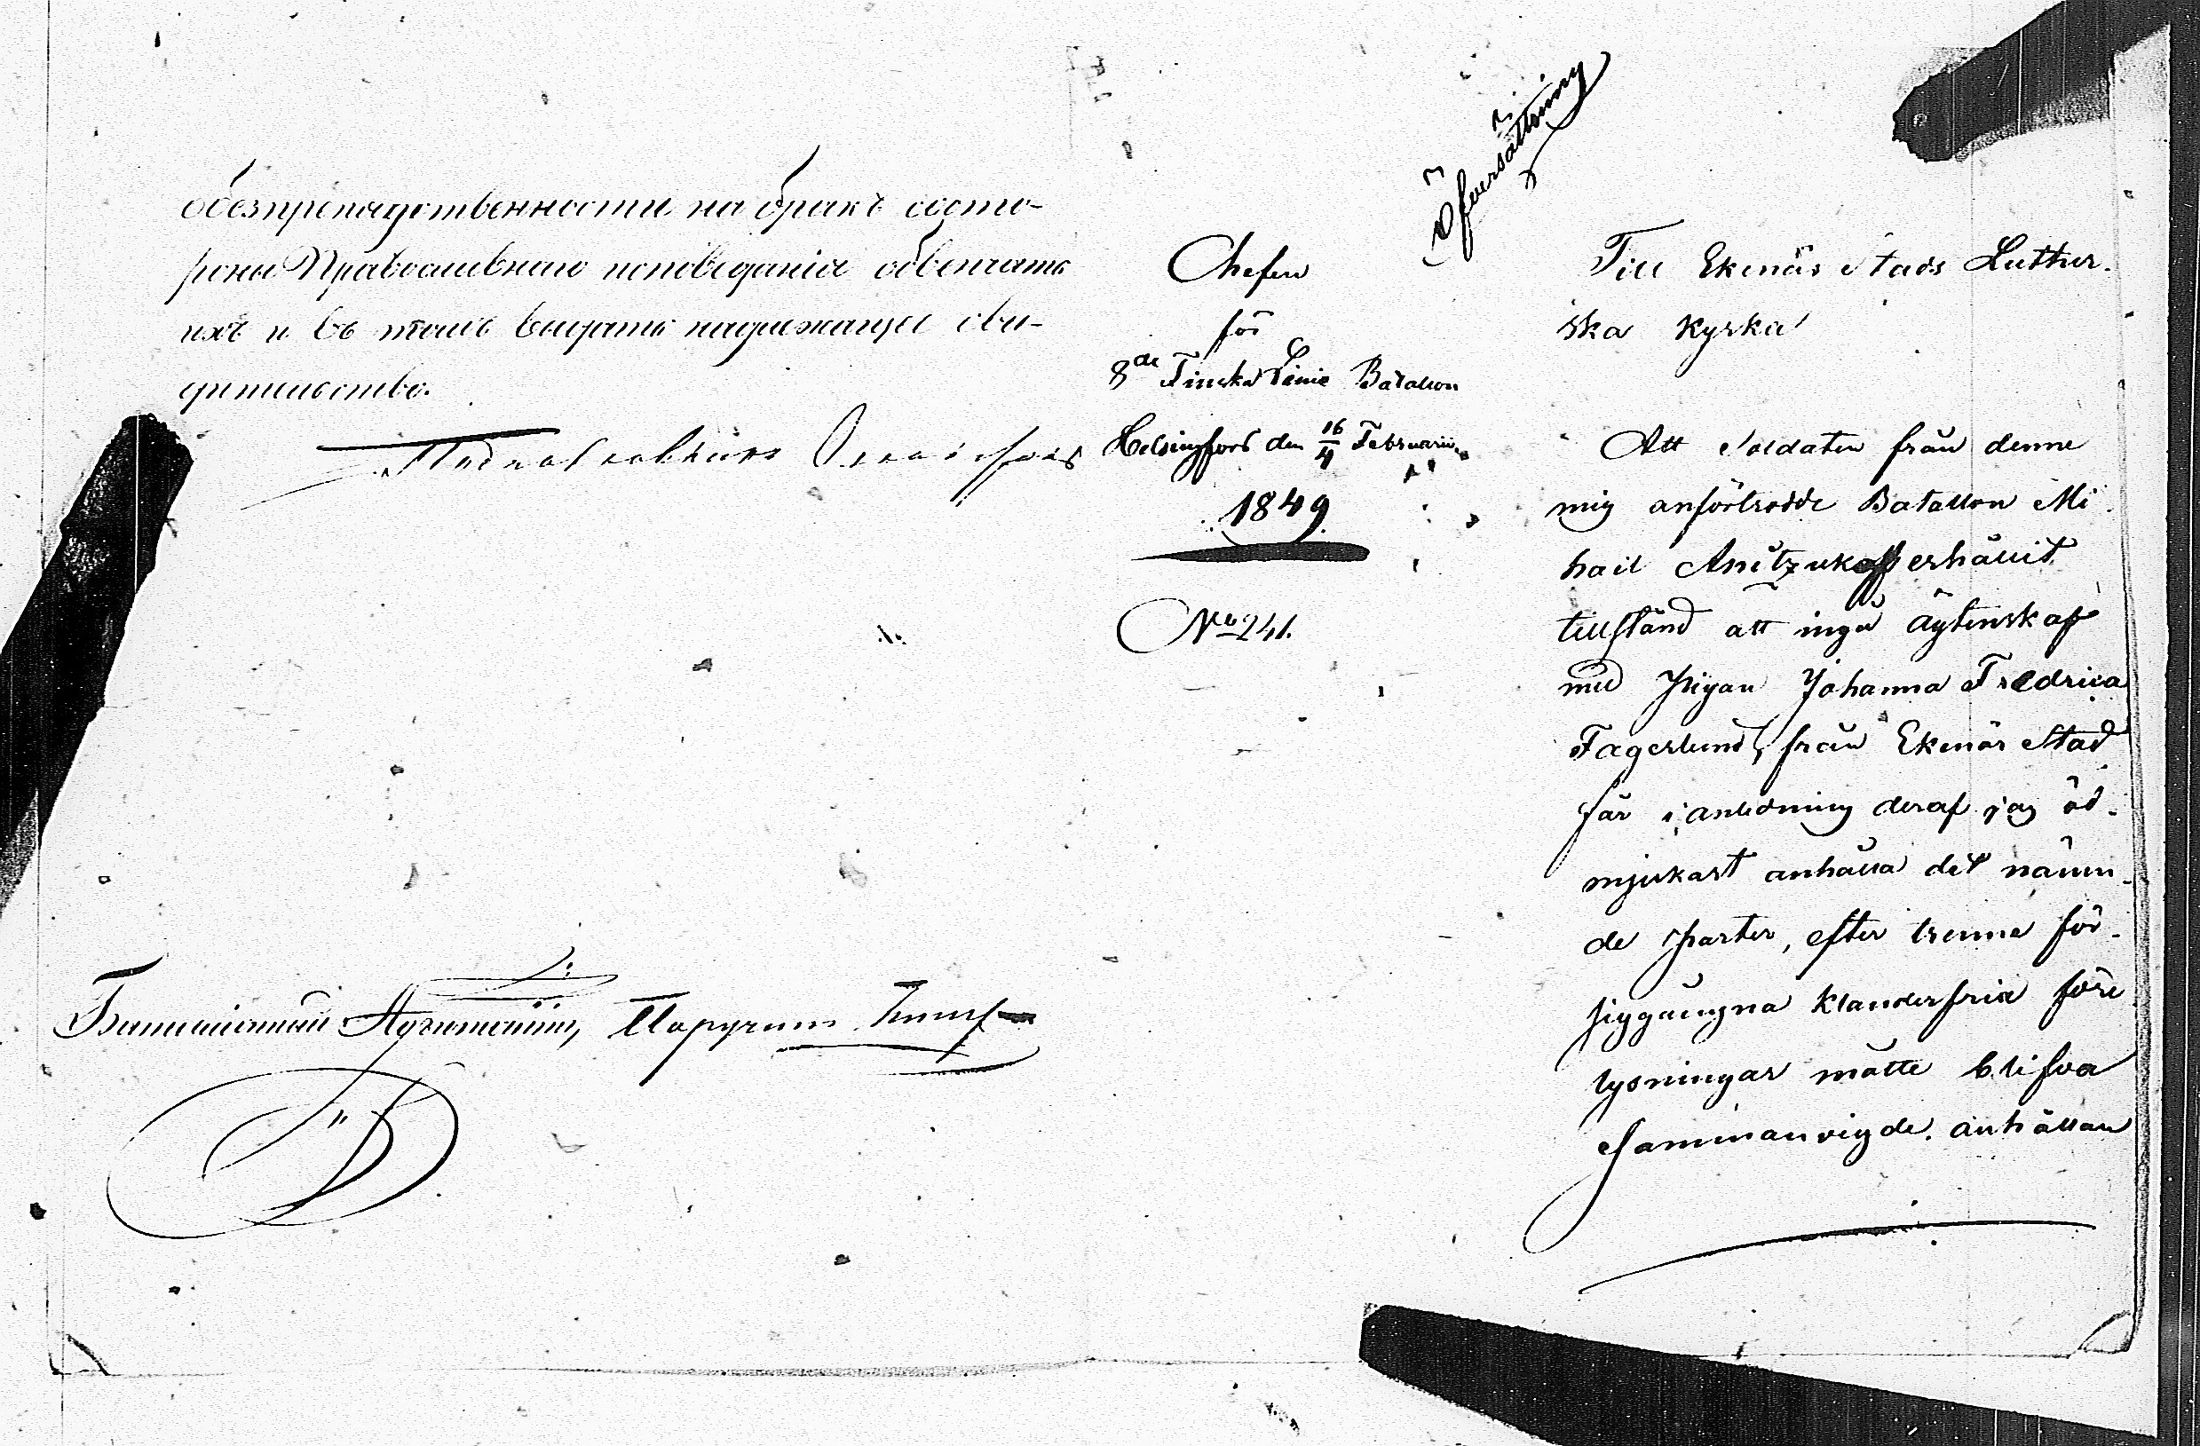 обезпрепядственности на бракъ состо-
роны Православнаго исповѣданія обвенчать
ихъ и въ томъ выдать надлежащее сви-
дѣтельство.
Подполковникъ
Баталіонный Адъютантъ, Порутчик
Öfversättning
Chefen
för
8de Finska Linie Batalion
Helsingfors den 16/4 Februarii
1849.
No 241.
Till Ekenäs Stads Luther-
ska Kyrka
Att Soldaten från denne
mig anförtrodde Batallon Mi
hail Anitzukoff erhållit
tillstånd att ingå ägtenskap
med Pigan Johanna Fredrica
Fagerlund, från Ekenäs Stad
får i anledning deraf jag öd-
mjukast anhålla det nämn-
de parter, efter trenne för-
siggångna klanderfria före
lysningar måtte blifva
Sammanvigde. anhållan